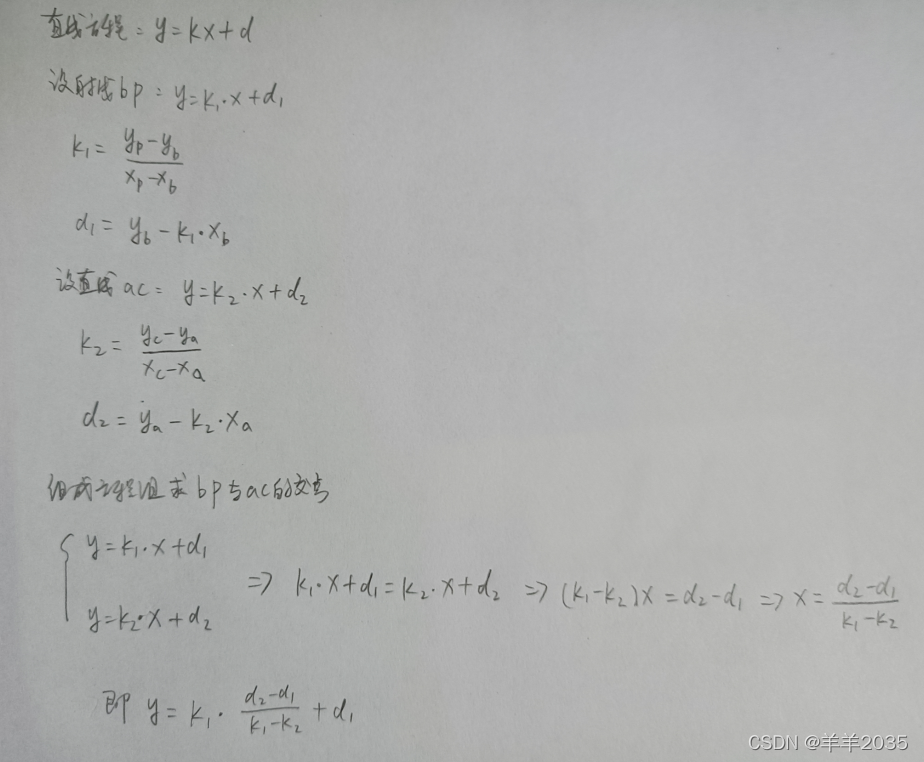 直线方程: y=kx+d
设射线bp: y=k₁·x+d₁
k₁= (y_p-y_b)/(x_p-x_b)
d₁= y_b-k₁·x_b
设直线ac: y=k₂·x+d₂
k₂= (y_c-y_a)/(x_c-x_a)
d₂= y_a-k₂·x_a
组成方程组求bp与ac的交点
{ y=k₁·x+d₁
y=k₂·x+d₂
=> k₁·x+d₁=k₂·x+d₂ => (k₁-k₂)x=d₂-d₁ => x= (d₂-d₁)/(k₁-k₂)
即 y= k₁· (d₂-d₁)/(k₁-k₂) +d₁
CSDN @羊羊2035